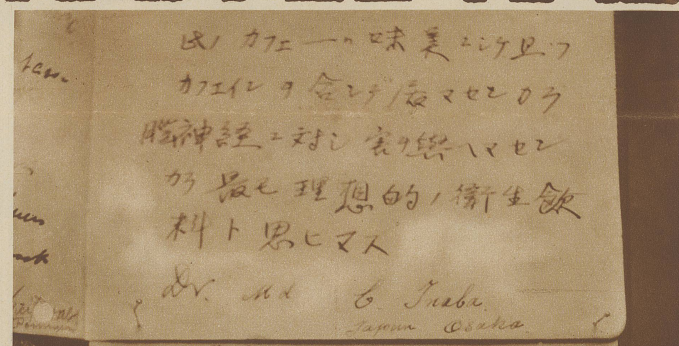 此ノカフエーハ味美ニシテ且ツ
カフエインヲ含ンデ居マセンカラ
脳神経ニ対シ害ヲ與ヘマセン
カラ最モ理想的ノ衛生飲
料ト思ヒマス
Dr. Md C. Inaba
Japan Osaka